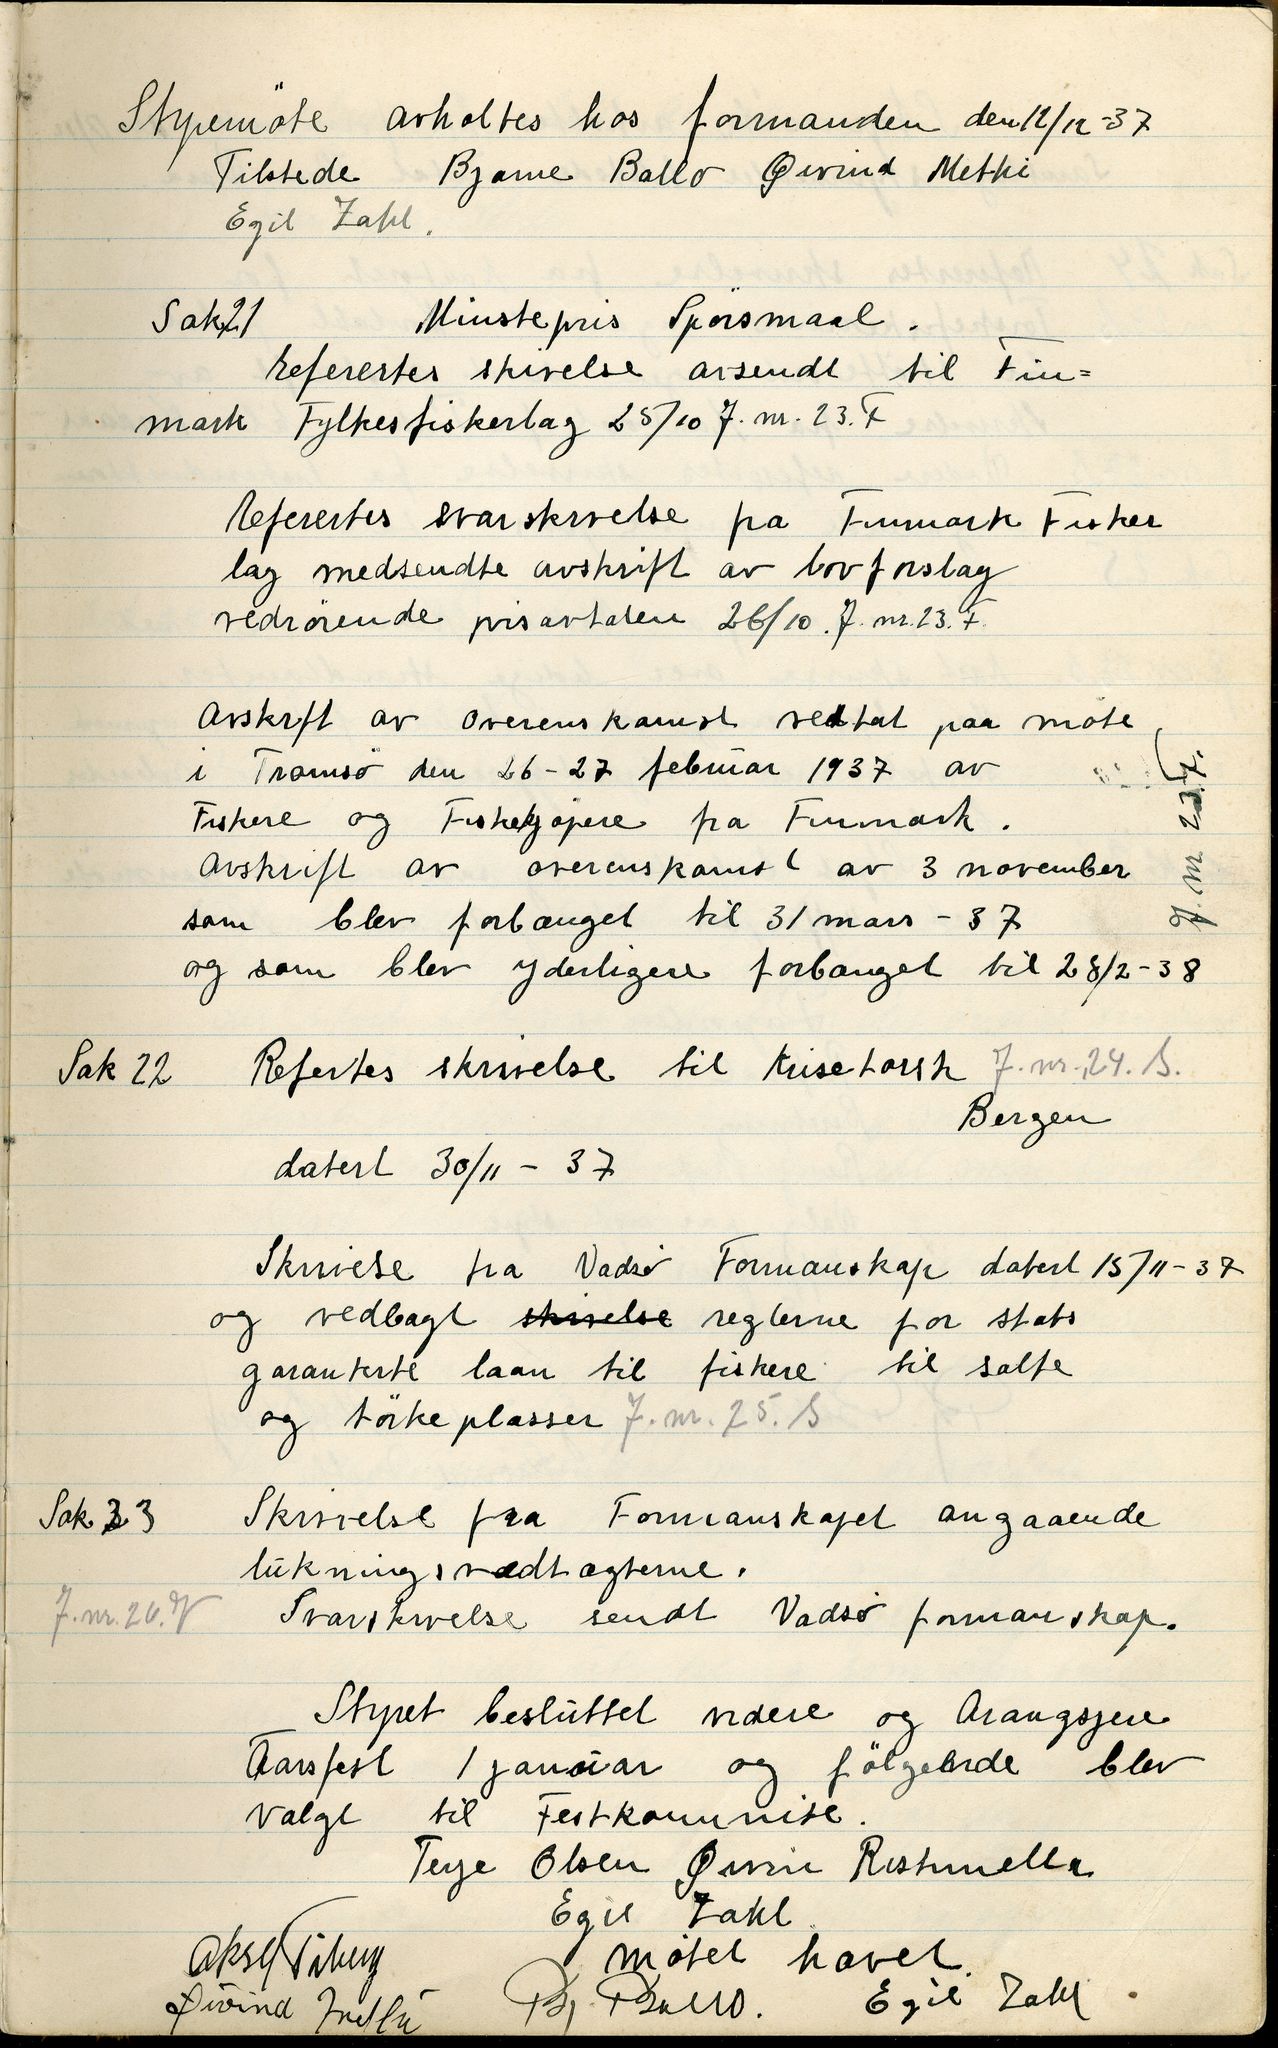 Styremöte avholtes hos formanden den 12/12-37
Tilstede Bjarne Ballo Øivind Methi
Egil Zahl.
Sak 21 Minstepris Spörsmaal.
Referertes skivelse avsendt til Fin=
mark Fylkesfiskerlag 25/10 J. nr. 23. F
Referertes svarskrivelse fra Finmark Fisker
lag medsendte avskrift av lovforslag
vedrörende prisavtalen 26/10. J. nr. 23. F.
Avskrift av overenskomst vedtat paa möte
i Tromsö den 26-27 februar 1937 av
Fiskere og Fiskekjöpere fra Finmark.
Avskrift av overenskomst av 3 november
som blev forlænget til 31 mars - 37
og som blev yderligere forlænget til 28/2-38
J. nr 23. F.
Sak 22 Refertes skrivelse til Krisetorsk J. nr. 24. S.
Bergen
datert 30/11 - 37
Skrivelse fra Vadsö Formanskap datert 15/11-37
og vedlagt skrivelse reglerne for stats
garanterte laan til fiskere til salte
og törkeplasser J. nr. 25. S
Sak 23 Skrivelse fra Formanskapet angaaende
lukningsvedtægterne.
J. nr. 26. V Svarskrivelse sendt Vadsö formanskap.
Styret besluttet videre og Arangsjere
Aarsfest 1 januar og fölgende blev
valgt til Festkommite.
Terje Olsen Øivin Ristimella
Egil Zahl
mötet hævet.
Aksel
Øivind Methi Bj. Ballo. Egil Zahl.